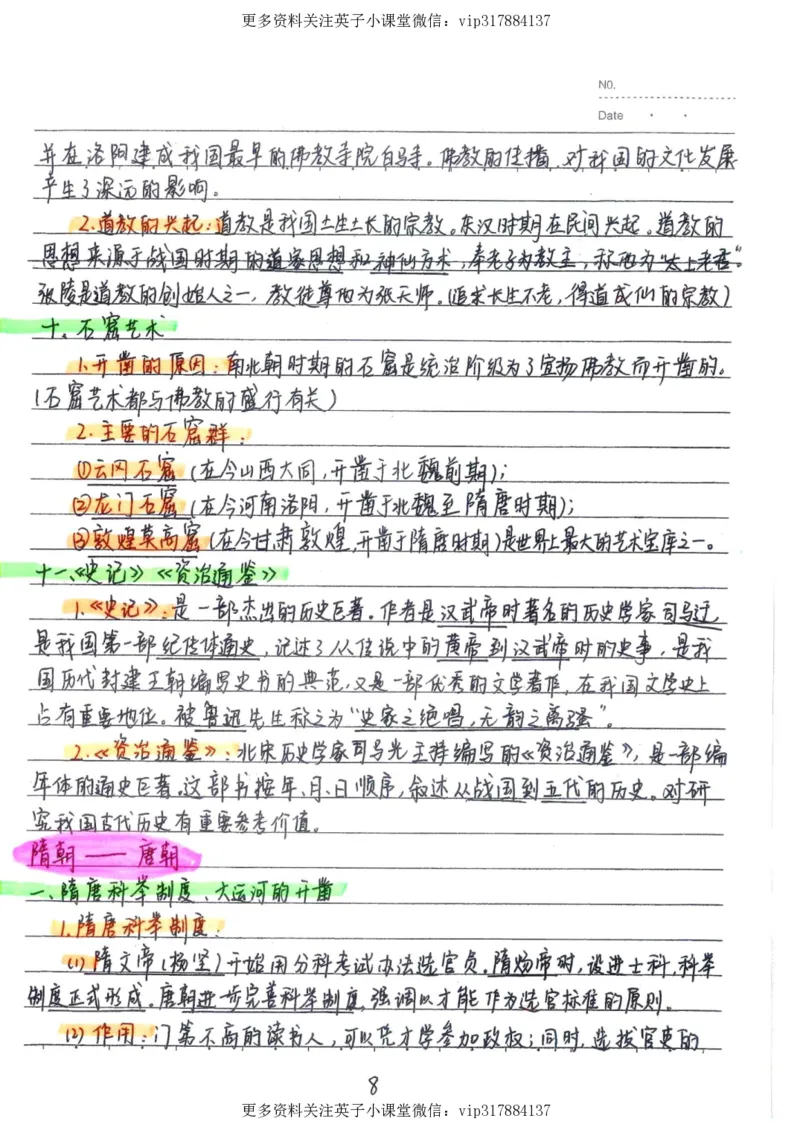 更多资料关注英子小课堂微信：vip317884137
NO.
Date
并在洛阳建成我国最早的佛教寺院白马寺。佛教的传播，对我国的文化发展
产生了深远的影响。
2.道教的兴起：道教是我国土生土长的宗教。东汉时期在民间兴起。道教的
思想来源于战国时期的道家思想和神仙方术，奉老子为教主，称他为“太上老君”。
张陵是道教的创始人之一，教徒尊他为张天师。（追求长生不老，得道成仙的宗教）
十、石窟艺术
1.开凿的原因：南北朝时期的石窟是统治阶级为了宣扬佛教而开凿的。
（石窟艺术都与佛教的盛行有关）
2.主要的石窟群：
①云冈石窟（在今山西大同，开凿于北魏前期）；
②龙门石窟（在今河南洛阳，开凿于北魏至隋唐时期）；
③敦煌莫高窟（在今甘肃敦煌，开凿于隋唐时期）是世界上最大的艺术宝库之一。
十一、《史记》《资治通鉴》
1.《史记》：是一部杰出的历史巨著。作者是汉武帝时著名的历史学家司马迁，
是我国第一部纪传体通史，记述了从传说中的黄帝到汉武帝时的史事，是我
国历代封建王朝编写史书的典范，又是一部优秀的文学著作，在我国文学史上
占有重要地位。被鲁迅先生称之为“史家之绝唱，无韵之离骚”。
2.《资治通鉴》：北宋历史学家司马光主持编写的《资治通鉴》，是一部编
年体的通史巨著。这部书按年、月、日顺序，叙述从战国到五代的历史。对研
究我国古代历史有重要参考价值。
隋朝——唐朝
一、隋唐科举制度、大运河的开凿
1.隋唐科举制度：
(1)隋文帝（杨坚）开始用分科考试办法选官员。隋炀帝时，设进士科，科举
制度正式形成。唐朝进一步完善科举制度，强调以才能作为选官标准的原则。
(2)作用：门第不高的读书人，可以凭才学参加政权；同时，选拔官吏的
8
更多资料关注英子小课堂微信：vip317884137